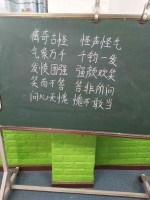 稀奇古怪 怪声怪气
气象万千 千钧一发
发愤图强 强颜欢笑
笑而不答 答非所问
问心无愧 愧不敢当